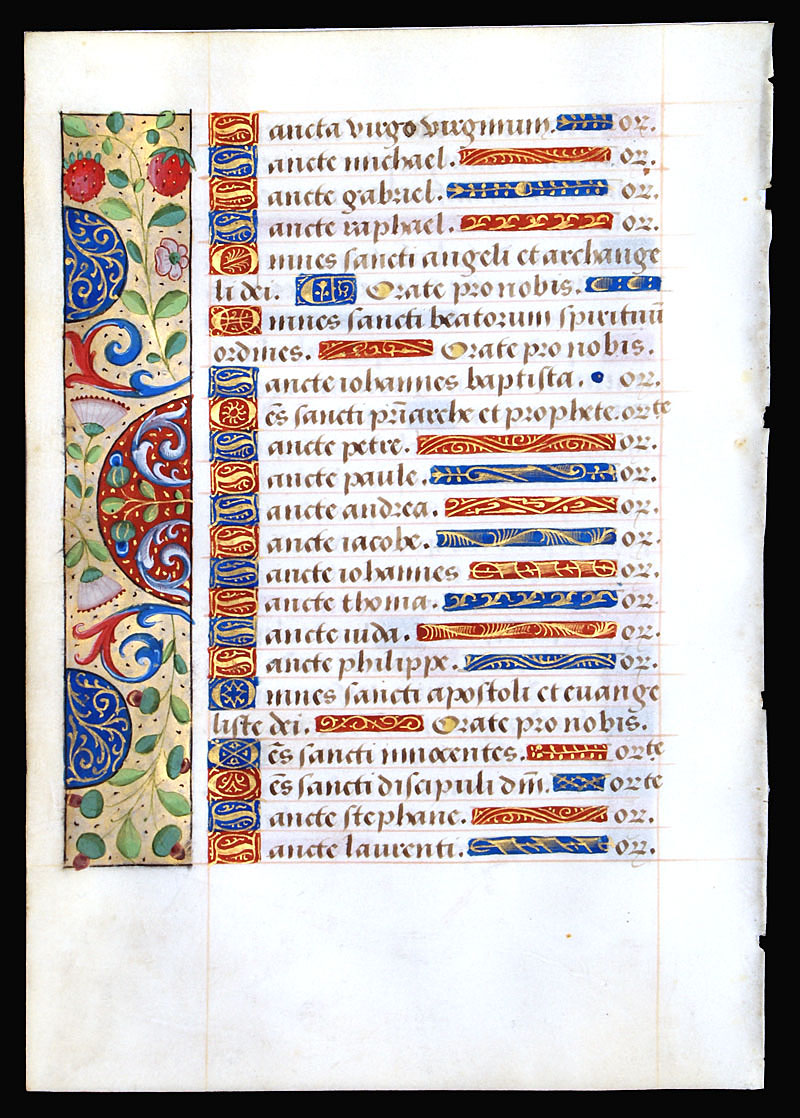 Sancta virgo virginum. or.
Sancte michael. or.
Sancte gabriel. or.
Sancte raphael. or.
Omnes sancti angeli et archange
li dei. Orate pro nobis.
Omnes sancti beatorum spirituũ
ordines. Orate pro nobis.
Sancte iohannes baptista. or.
Oẽs sancti pr̃iarche et prophete. orate
Sancte petre. or.
Sancte paule. or.
Sancte andrea. or.
Sancte iacobe. or.
Sancte iohannes or.
Sancte thoma. or.
Sancte iuda. or.
Sancte philippe. or.
Omnes sancti apostoli et euange
liste dei. Orate pro nobis.
Oẽs sancti innocentes. orate
Oẽs sancti discipuli dñi. orate
Sancte stephane. or.
Sancte laurenti. or.